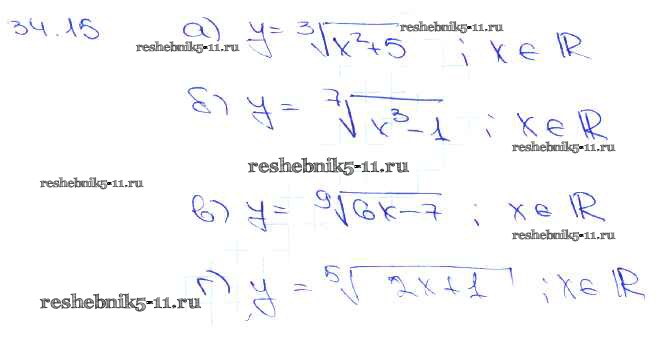 34.15 а) y = ³√(x²+5) ; x ∈ ℝ
reshebnik5-11.ru reshebnik5-11.ru
б) y = ⁷√(x³-1) ; x ∈ ℝ
reshebnik5-11.ru
reshebnik5-11.ru
reshebnik5-11.ru
в) y = ⁹√(6x-7) ; x ∈ ℝ
reshebnik5-11.ru
г) y = ⁵√(2x+1) ; x ∈ ℝ
reshebnik5-11.ru